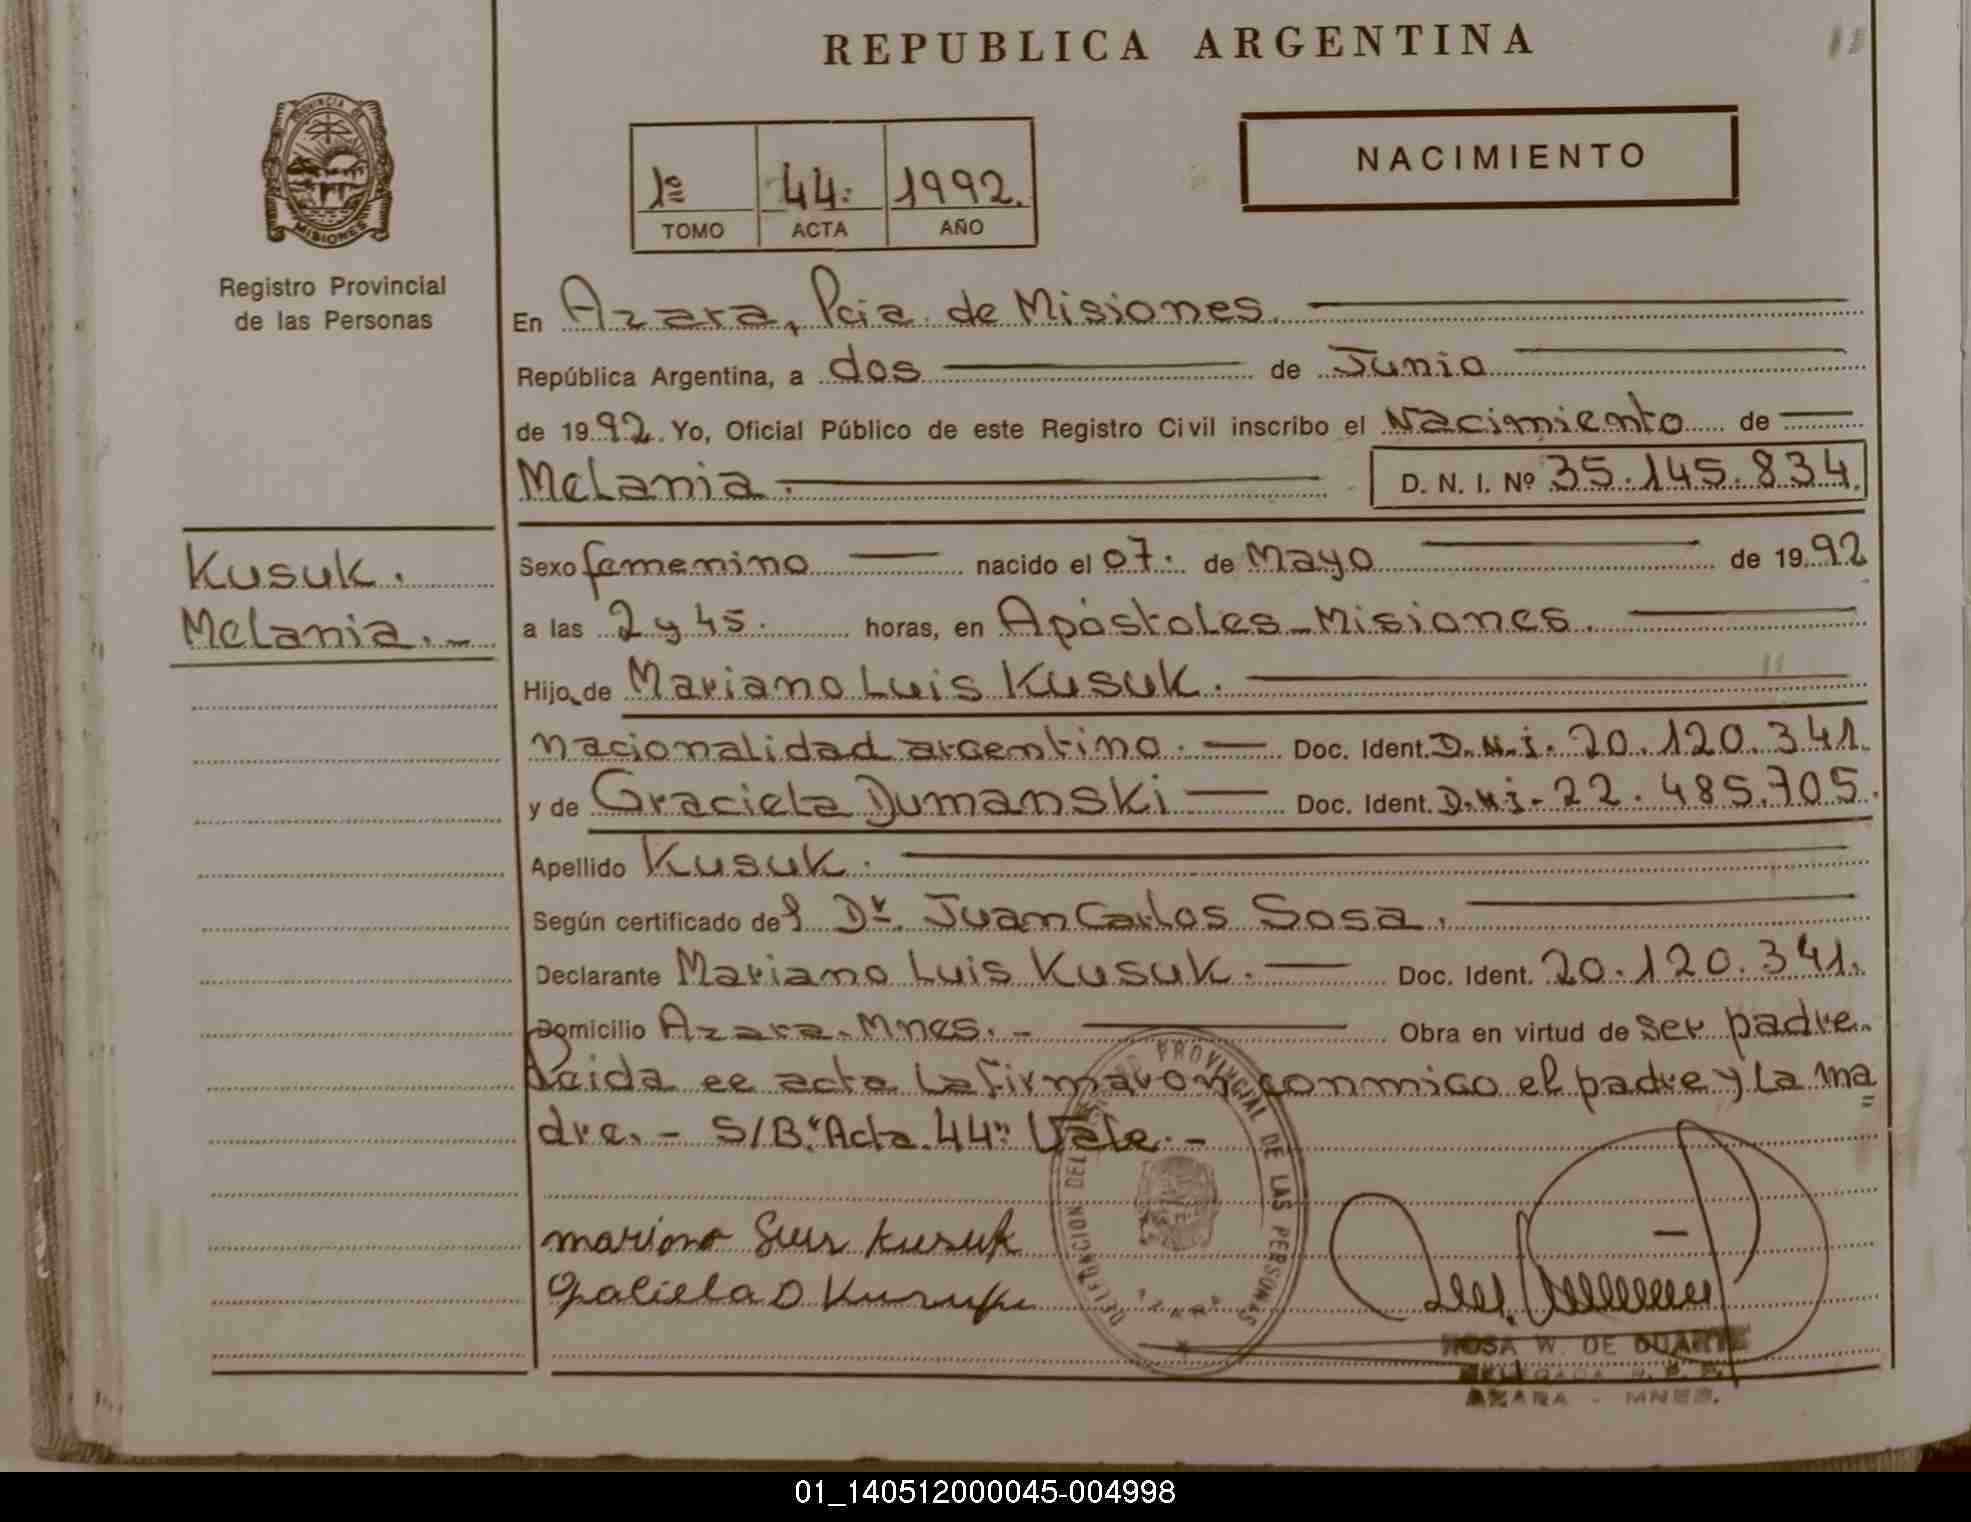 REPUBLICA ARGENTINA
PROVINCIA DE
MISIONES
Registro Provincial
de las Personas
1º 44. 1992.
TOMO ACTA AÑO
NACIMIENTO
En Azara, Pcia. de Misiones.
República Argentina, a dos de Junio
de 1992. Yo, Oficial Público de este Registro Civil inscribo el Nacimiento de
Melania. D. N. I. Nº 35.145.834.
Kusuk.
Melania.-
Sexo femenino nacido el 07. de Mayo de 1992
a las 2 y 45. horas, en Apóstoles-Misiones.
Hijo de Mariano Luis Kusuk.
nacionalidad argentino. Doc. Ident. D.N.i. 20.120.341.
y de Graciela Dumanski Doc. Ident. D.N.i. 22.485.705.
Apellido Kusuk.
Según certificado del Dr. Juan Carlos Sosa.
Declarante Mariano Luis Kusuk. Doc. Ident. 20.120.341.
Domicilio Azara-Mnes.- Obra en virtud de ser padre.
Leida ee acta la firmaron conmigo el padre y la ma
dre.- S/B."Acta.44" Vale.-
mariano Luis Kusuk
Graciela D Kusuk
PROVINCIAL DE LAS PERSONAS
ROSA W. DE DUARTE
DELEGADA R. P. P.
AZARA - MNES.
01_140512000045-004998